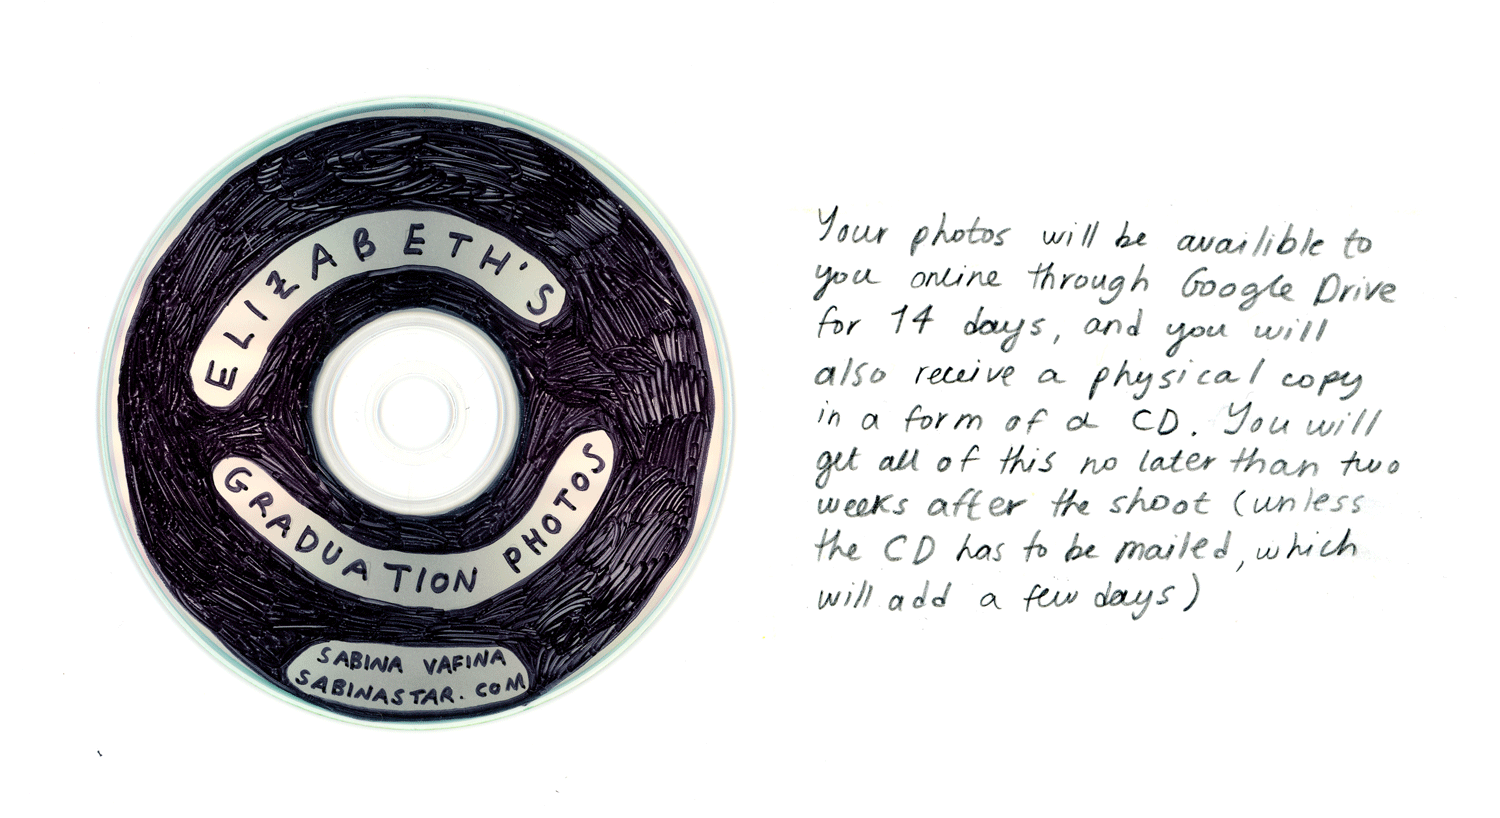 ELIZABETH'S
GRADUATION PHOTOS
SABINA VAFINA
SABINASTAR.COM
Your photos will be availible to
you online through Google Drive
for 14 days, and you will
also receive a physical copy
in a form of a CD. You will
get all of this no later than two
weeks after the shoot (unless
the CD has to be mailed, which
will add a few days)